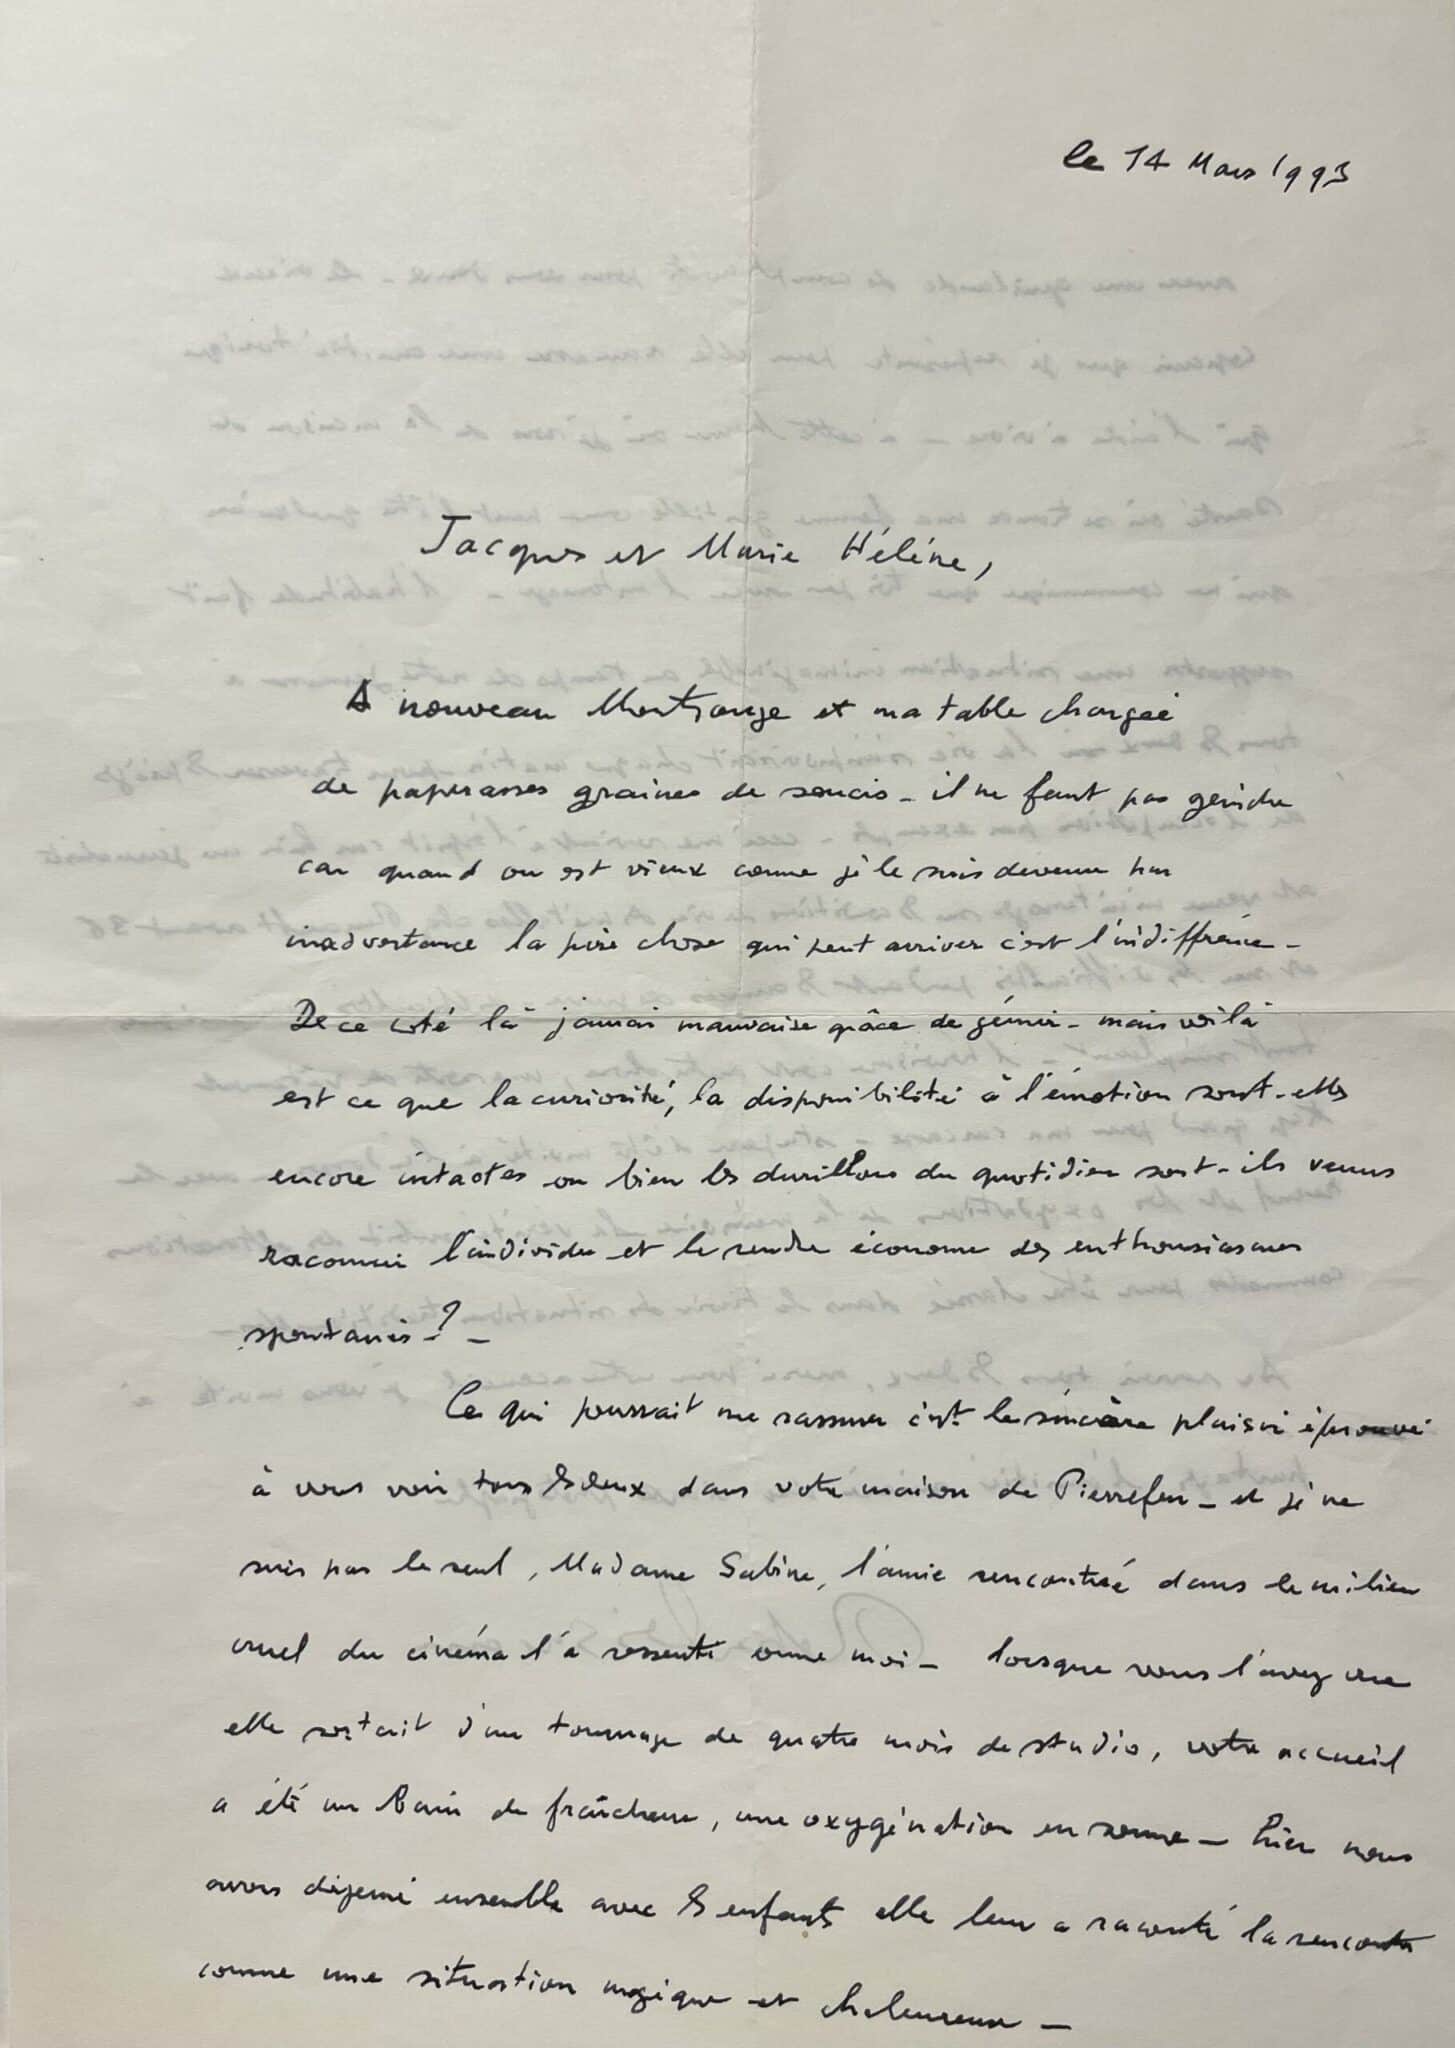 le 14 Mars 1993
Jacques et Marie Hélène,
A nouveau Montrouge et ma table chargée
de paperasses graines de soucis - il ne faut pas geindre
car quand on est vieux comme je le suis devenu par
inadvertance la pire chose qui peut arriver c'est l'indifférence -
De ce coté là jamais mauvaise grâce de gémir - mais voilà
est ce que la curiosité, la disponibilité à l'émotion sont-elles
encore intactes ou bien les durillons du quotidien sont-ils venus
racornir l'individu et le rendre économe des enthousiasmes
spontanés - ? -
Ce qui pourrait me rassurer c'est le sincère plaisir éprouvé
à vous voir tous les deux dans votre maison de Pierrefeu - et je ne
suis pas le seul, Madame Sabine, l'amie rencontrée dans le milieu
cruel du cinéma l'a ressenti comme moi - lorsque vous l'avez vue
elle sortait d'un tournage de quatre mois de studio, votre accueil
a été un bain de fraîcheur, une oxygénation en somme - hier nous
avons déjeuné ensemble avec les enfants elle leur a raconté la rencontre
comme une situation magique et chaleureuse -